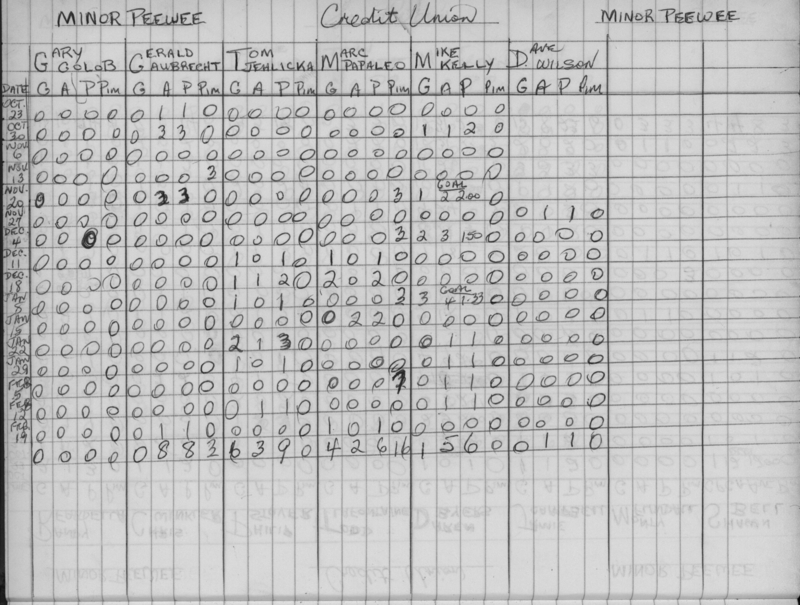 MINOR PEEWEE Credit Union MINOR PEEWEE
GARY GOLOB GERALD GAUBRECHT TOM JEHLICKA MARC PAPALEO MIKE KELLY DAVE WILSON
DATE G A P Pim G A P Pim G A P Pim G A P Pim G A P Pim G A P Pim
OCT. 23 0 0 0 0 0 1 1 0 0 0 0 0 0 0 0 0 0 0 0 0
OCT 30 0 0 0 0 0 3 3 0 0 0 0 0 0 0 0 0 1 1 2 0
NOV 6 0 0 0 0 0 0 0 0 0 0 0 0 0 0 0 0 0 0 0 0
NOV 13 0 0 0 0 0 0 0 3 0 0 0 0 0 0 0 0 0 0 0 0
NOV. 20 0 0 0 0 0 3 3 0 0 0 0 0 0 0 0 3 1 GOAL 2 2.00 0
NOV. 27 0 0 0 0 0 0 0 0 0 0 0 0 0 0 0 0 0 0 0 0 0 1 1 0
DEC. 4 0 0 0 0 0 0 0 0 0 0 0 0 0 0 0 3 2 3 1.50 0 0 0 0 0
DEC. 11 0 0 0 0 0 0 0 0 1 0 1 0 1 0 1 0 0 0 0 0 0 0 0 0
DEC. 18 0 0 0 0 0 0 0 0 1 1 2 0 2 0 2 0 0 0 0 0 0 0 0 0
JAN 5 0 0 0 0 0 0 0 0 1 0 1 0 0 0 0 3 3 GOAL 4 1.33 0 0 0 0 0
JAN 15 0 0 0 0 0 0 0 0 0 0 0 0 0 2 2 0 0 0 0 0 0 0 0 0
JAN 22 0 0 0 0 0 0 0 0 2 1 3 0 0 0 0 0 0 1 1 0 0 0 0 0
JAN 29 0 0 0 0 0 0 0 0 1 0 1 0 0 0 0 0 0 1 1 0 0 0 0 0
FEB 5 0 0 0 0 0 0 0 0 0 0 0 0 0 0 0 7 0 1 1 0 0 0 0 0
FEB 12 0 0 0 0 0 0 0 0 0 1 1 0 0 0 0 0 0 1 1 0 0 0 0 0
FEB 19 0 0 0 0 0 1 1 0 0 0 0 0 1 0 1 0 0 0 0 0 0 0 0 0
0 0 0 0 0 8 8 3 6 3 9 0 4 2 6 16 1 5 6 0 0 1 1 0